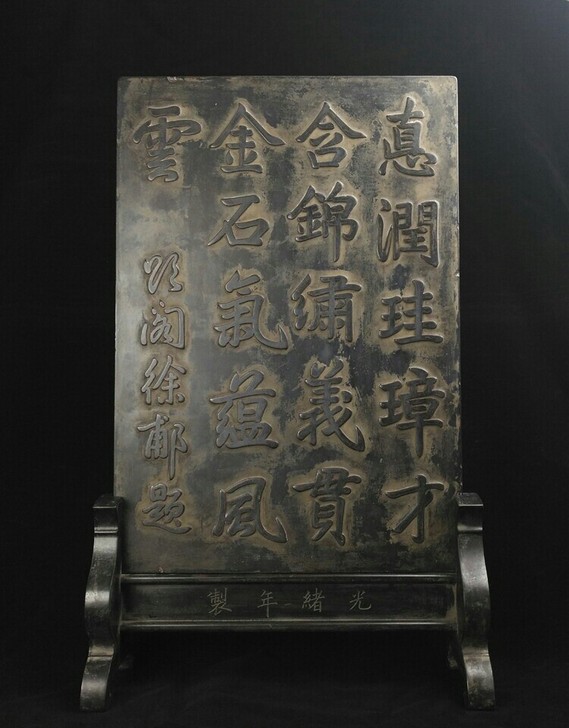 悳潤珪璋才
含錦繡義貫
金石氣蘊風
雲
頌閣徐郙題
光緒年製